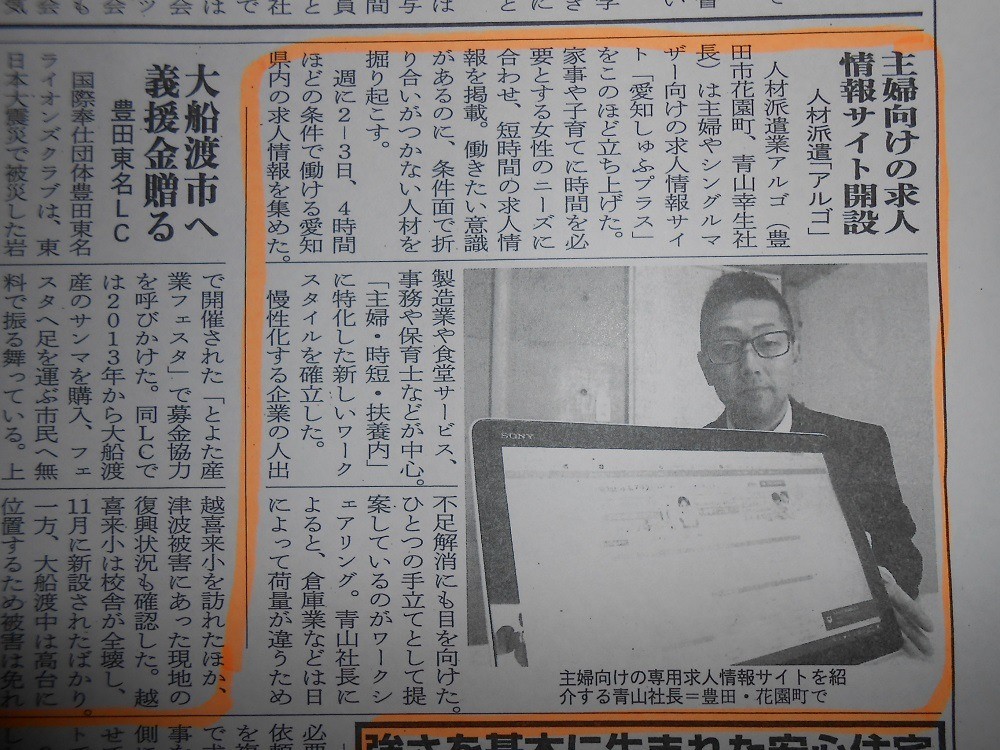 主婦向けの求人
情報サイト開設
人材派遣「アルゴ」
人材派遣業アルゴ（豊
田市花園町、青山幸生社
長）は主婦やシングルマ
ザー向けの求人情報サイ
ト「愛知しゅふプラス」
をこのほど立ち上げた。
家事や子育てに時間を必
要とする女性のニーズに
合わせ、短時間の求人情
報を掲載。働きたい意識
があるのに、条件面で折
り合いがつかない人材を
掘り起こす。
週に2−3日、4時間
ほどの条件で働ける愛知
県内の求人情報を集めた。
製造業や食堂サービス、
事務や保育士などが中心。
「主婦・時短・扶養内」
に特化した新しいワーク
スタイルを確立した。
慢性化する企業の人出
不足解消にも目を向けた。
ひとつの手立てとして提
案しているのがワークシ
ェアリング。青山社長に
よると、倉庫業などは日
によって荷量が違うため
SONY
主婦向けの専用求人情報サイトを紹
介する青山社長＝豊田・花園町で
大船渡市へ
義援金贈る
豊田東名LC
国際奉仕団体豊田東名
ライオンズクラブは、東
日本大震災で被災した岩
で開催された「とよた産
業フェスタ」で募金協力
を呼びかけた。同LCで
は2013年から大船渡
産のサンマを購入、フェ
スタへ足を運ぶ市民へ無
料で振る舞っている。上
越喜来小を訪れたほか、
津波被害にあった現地の
復興状況も確認した。越
喜来小は校舎が全壊し、
11月に新設されたばかり。
一方、大船渡中は高台に
位置するため被害は免れ